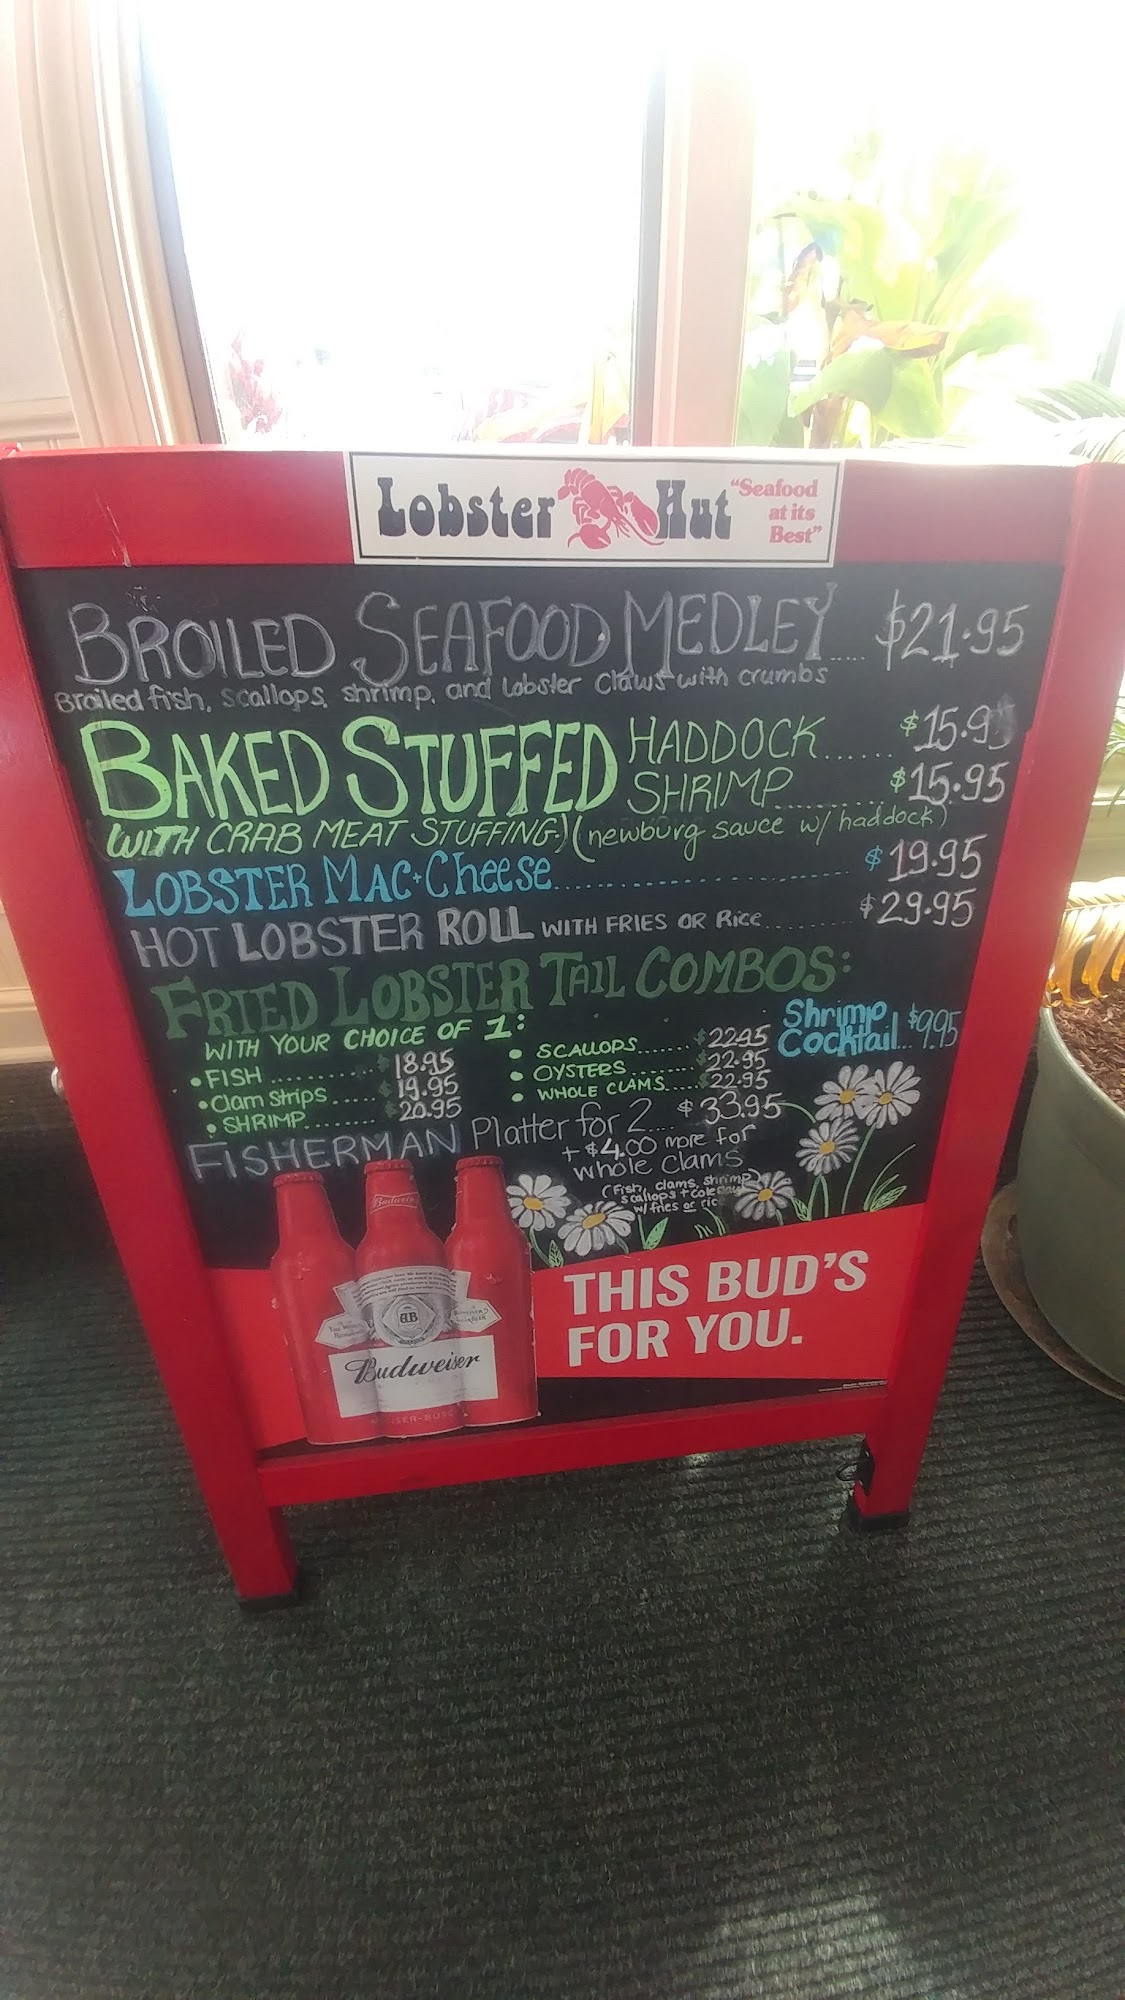 Lobster Hut "Seafood
at its
Best"
BROILED SEAFOOD MEDLEY..... $21.95
Broiled fish, scallops, shrimp, and lobster claws with crumbs
BAKED STUFFED HADDOCK...... $15.95
SHRIMP......... $15.95
(WITH CRAB MEAT STUFFING) (newburg sauce w/ haddock)
LOBSTER MAC+Cheese.............................. $19.95
HOT LOBSTER ROLL WITH FRIES OR Rice.......... $29.95
FRIED LOBSTER TAIL COMBOS:
WITH YOUR CHOICE OF 1:
• FISH ........... $18.95
• Clam Strips ..... $19.95
• SHRIMP......... $20.95
• SCALLOPS....... $22.95
• OYSTERS....... $22.95
• WHOLE CLAMS..... $22.95
Shrimp
Cocktail... $9.95
FISHERMAN Platter for 2.... $33.95
+ $4.00 more for
whole clams
(Fish, clams, shrimp,
scallops +
w/ fries or
Budweiser
AB
Budweiser
THIS BUD'S
FOR YOU.